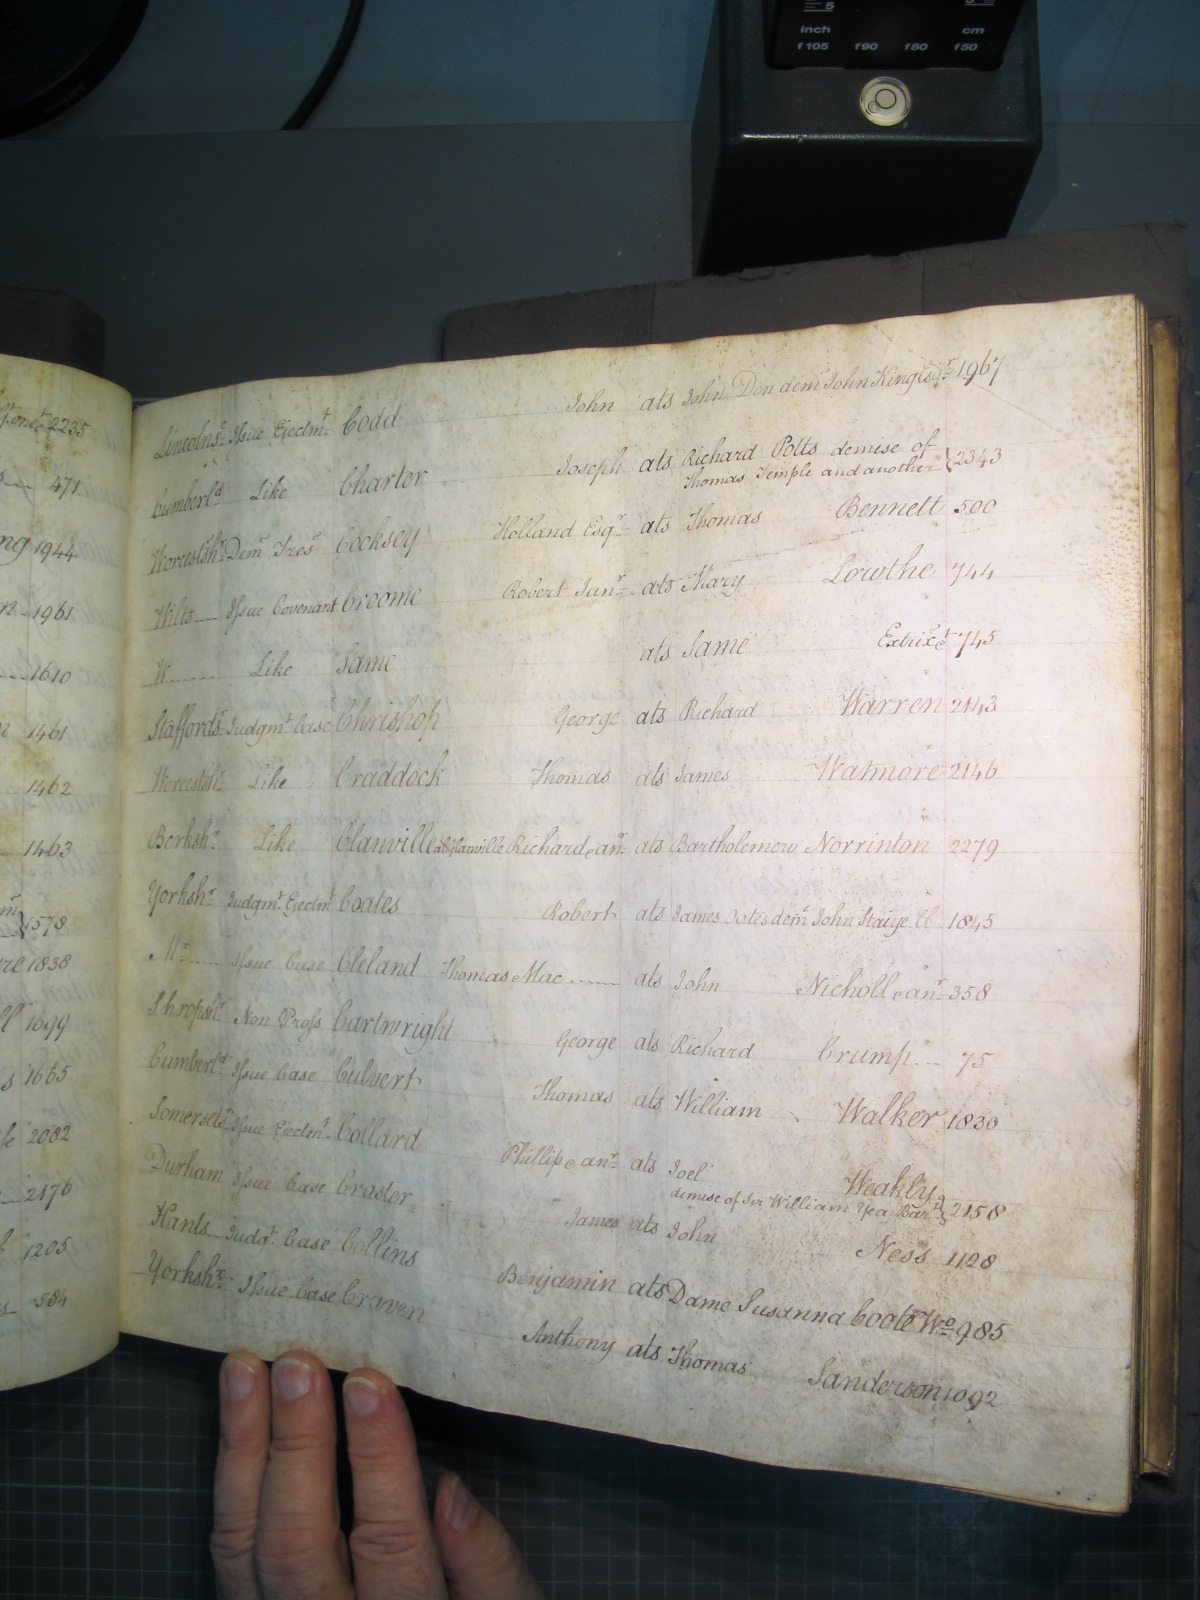 5
inch cm
f105 f90 f80 f50
PHILIPS
2235
471
ng 1944
n 1961
1610
n 1461
1462
1463
m 1578
re 1838
ll 1699
s 1665
le 2082
2176
1205
s 584
Lincolnsr. Issue Ejectmt. Codd John ats John Den demr John King Esqr. 1967
Cumberld Like Charter Joseph ats Richard Potts demise of
Thomas Temple and another } 2343
Worcestshr. Demr Tress Cocksey Holland Esqr. ats Thomas Bennett 500
Wilts Issue Covenant Croome Robert Junr. ats Mary Lowthe 744
W Like Same ats Same Extrix &c 745
Staffordsr. Judgmt. Case Chrishop George ats Richard Warren 2143
Worcestshr. Like Craddock Thomas ats James Watmore 2146
Berkshr. Like Clanville als Glanville Richard & anr. ats Bartholemew Norrinton 2279
Yorkshr. Judgmt. Ejectmt Coates Robert ats James dem John 1845
Mr. Issue Case Cleland Thomas Mac ats John Nicholl & anr. 358
Shropshr. Non Pross Cartwright George ats Richard Crump 75
Cumberld. Issue Case Culvert Thomas ats William Walker 1830
Somersetsr. Issue Ejectmt. Collard Phillip & anr. ats Joel Weakly
demise of Sir William Yea Bart. } 2158
Durham Issue Case Craster James ats John Ness 1128
Hants Judgt. Case Collins Benjamin ats Dame Susanna Coote Wo. 985
Yorkshr. Issue Case Craven Anthony ats Thomas Sanderson 1092